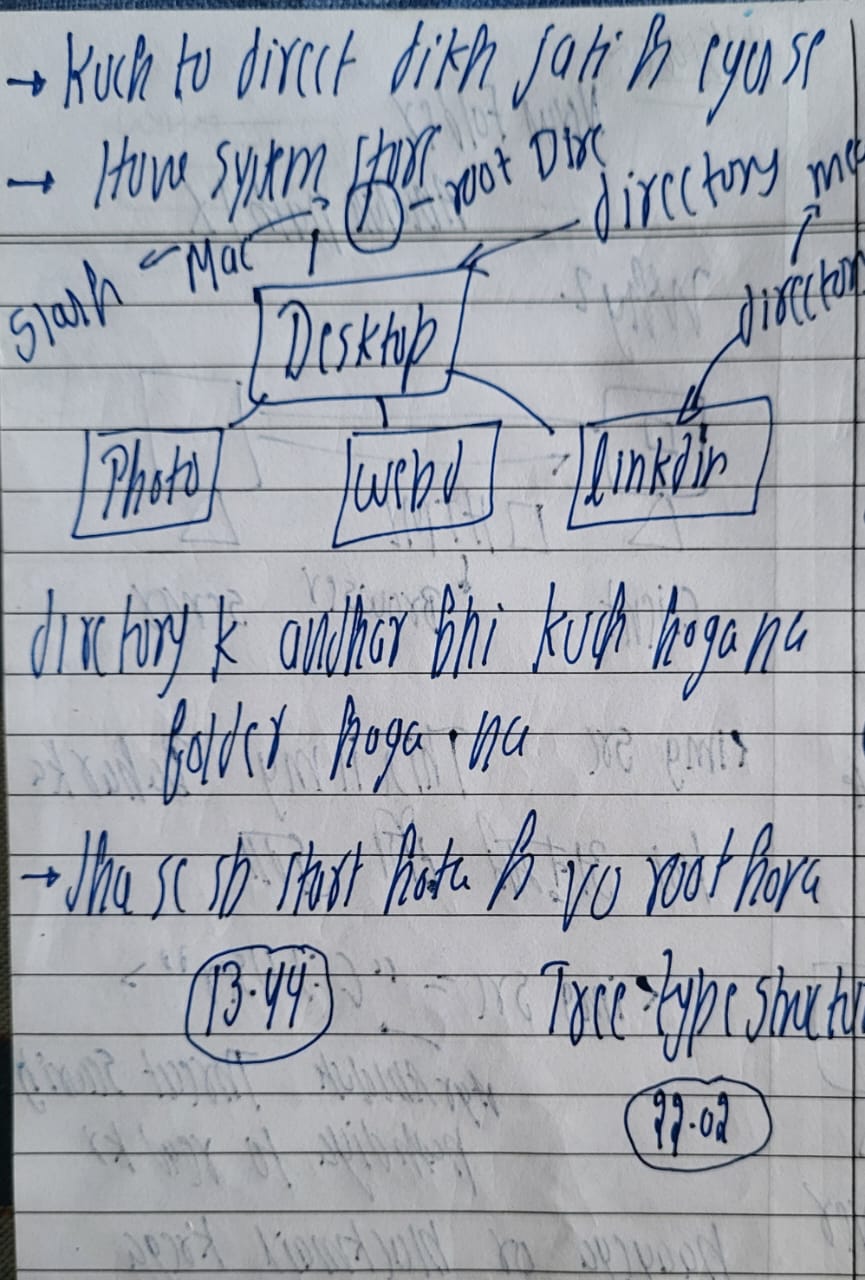 → Kuch to direct dikh jati h eyes se
→ How system store
/ - root Dirc
directory me
Slash ← Mac
directory
Desktop
Photo
webd
linkdin
dirctory k andhar bhi kuch hoga na
folder hoga na
→ Jha se sb start hota h vo root hora
13.44
Tree type structu
22.02